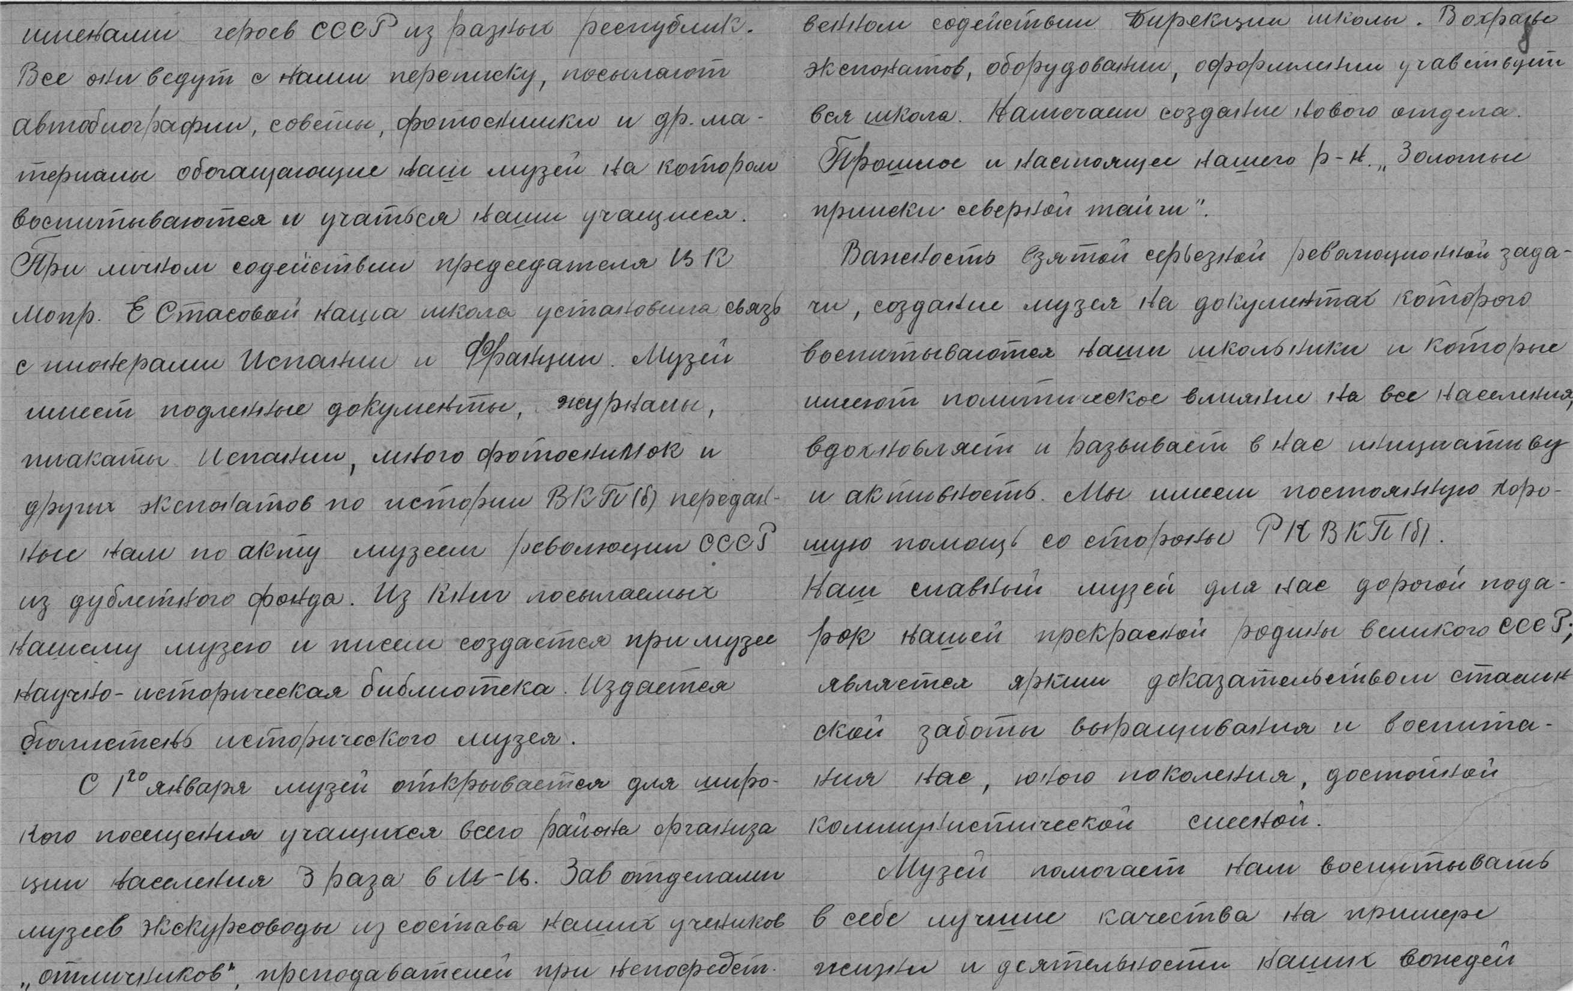 именами героев СССР из разных республик.
Все они ведут с нами переписку, посылают
автобиографии, советы, фотоснимки и др. ма-
териалы обогащающие наш музей на котором
воспитываются и учаться наши учащиеся.
При личном содействии председателя ЦК
Мопр. Е Стасовой наша школа установила связь
с пионерами Испании и Франции. Музей
имеет подленные документы, журналы,
плакаты Испании, много фотоснимок и
других экспонатов по истории ВКП(б) передан-
ные нам по акту музеем революции СССР
из дублетного фонда. Из книг посылаемых
нашему музею и писем создается при музее
научно-историческая библиотека. Издается
бюлистень исторического музея.
С 1го января музей открывается для широ-
кого посещения учащихся всего района организа
ции населения 3 раза в м-ц. Зав отделами
музеев экскурсоводы из состава наших учеников
„отличников", преподавателей при непосредст.
венном содействии Дирекции школы. В охране
экспонатов, оборудовании, оформлении учавствует
вся школа. Намечаем создание нового отдела.
Прошлое и настоящее нашего р-н. „Золотые
прииски северной тайги".
Важность взятой серьезной революционной зада-
чи, создание музея на документах которого
воспитываются наши школьники и которые
имеют политическое влияние на все население,
вдохновляет и развивает в нас инициативу
и активность. Мы имеем постоянную хоро-
шую помощь со стороны РК ВКП(б).
Наш славный музей для нас дорогой пода-
рок нашей прекрасной родины великого СССР;
является ярким доказательством сталин
ской заботы выращивания и воспита-
ния нас, юного поколения, достойной
коммунистической сменой.
Музей помогает нам воспитывать
в себе лучшие качества на примере
жизни и деятельности наших вождей